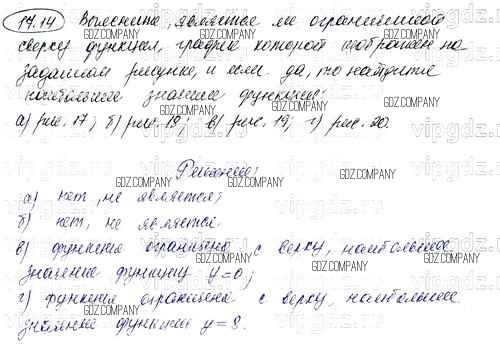 17.14 Выяснить, является ли ограниченной
сверху функция, график которой изображен на
заданном рисунке, и если да, то найдите
наибольшее значение функции:
а) рис. 17; б) рис. 18; в) рис. 19; г) рис. 20.
Решение:
а) нет, не является;
б) нет, не является
в) функция ограничена с верху, наибольшее
значение функции y=0;
г) функция ограничена с верху, наибольшее
значение функции y=8.